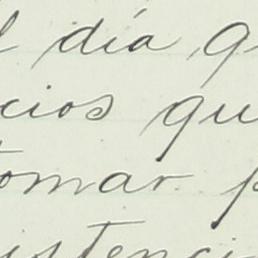 l día q
cios qu
tomar p
istenci